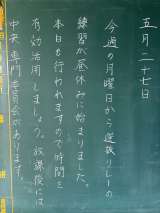 五月二十七日
今週の月曜日から選抜リレーの
練習が昼休みに始まりました。
本日も行われますので時間を
有効活用しましょう。放課後には
中央、専門委員会があります。